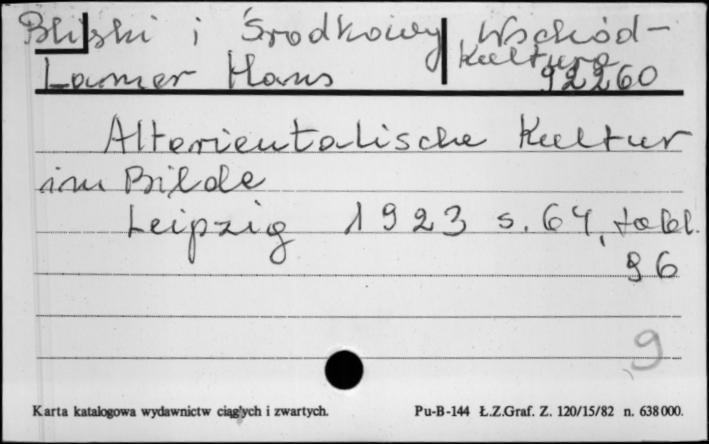 Bliski i Środkowy Wschód -
kultura
Lamer Hans 92260
Altorientalische Kultur
im Bilde
Leipzig 1923 s. 64, tabl.
96
9
Karta katalogowa wydawnictw ciągłych i zwartych. Pu-B-144 Ł.Z.Graf. Z. 120/15/82 n. 638000.